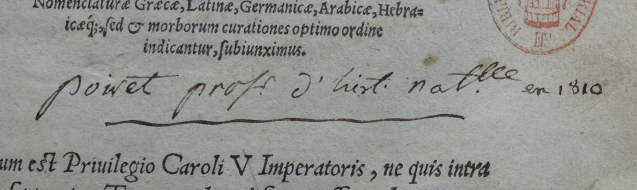 Nomenclaturæ Græcæ, Latinæ, Germanicæ, Arabicæ, Hebra=
icæq́;, ſed & morborum curationes optimo ordine
indicantur, ſubiunximus.
poiret prof.r d'hist. nat.lle en 1810
um eſt Priuilegio Caroli V Imperatoris, ne quis intra